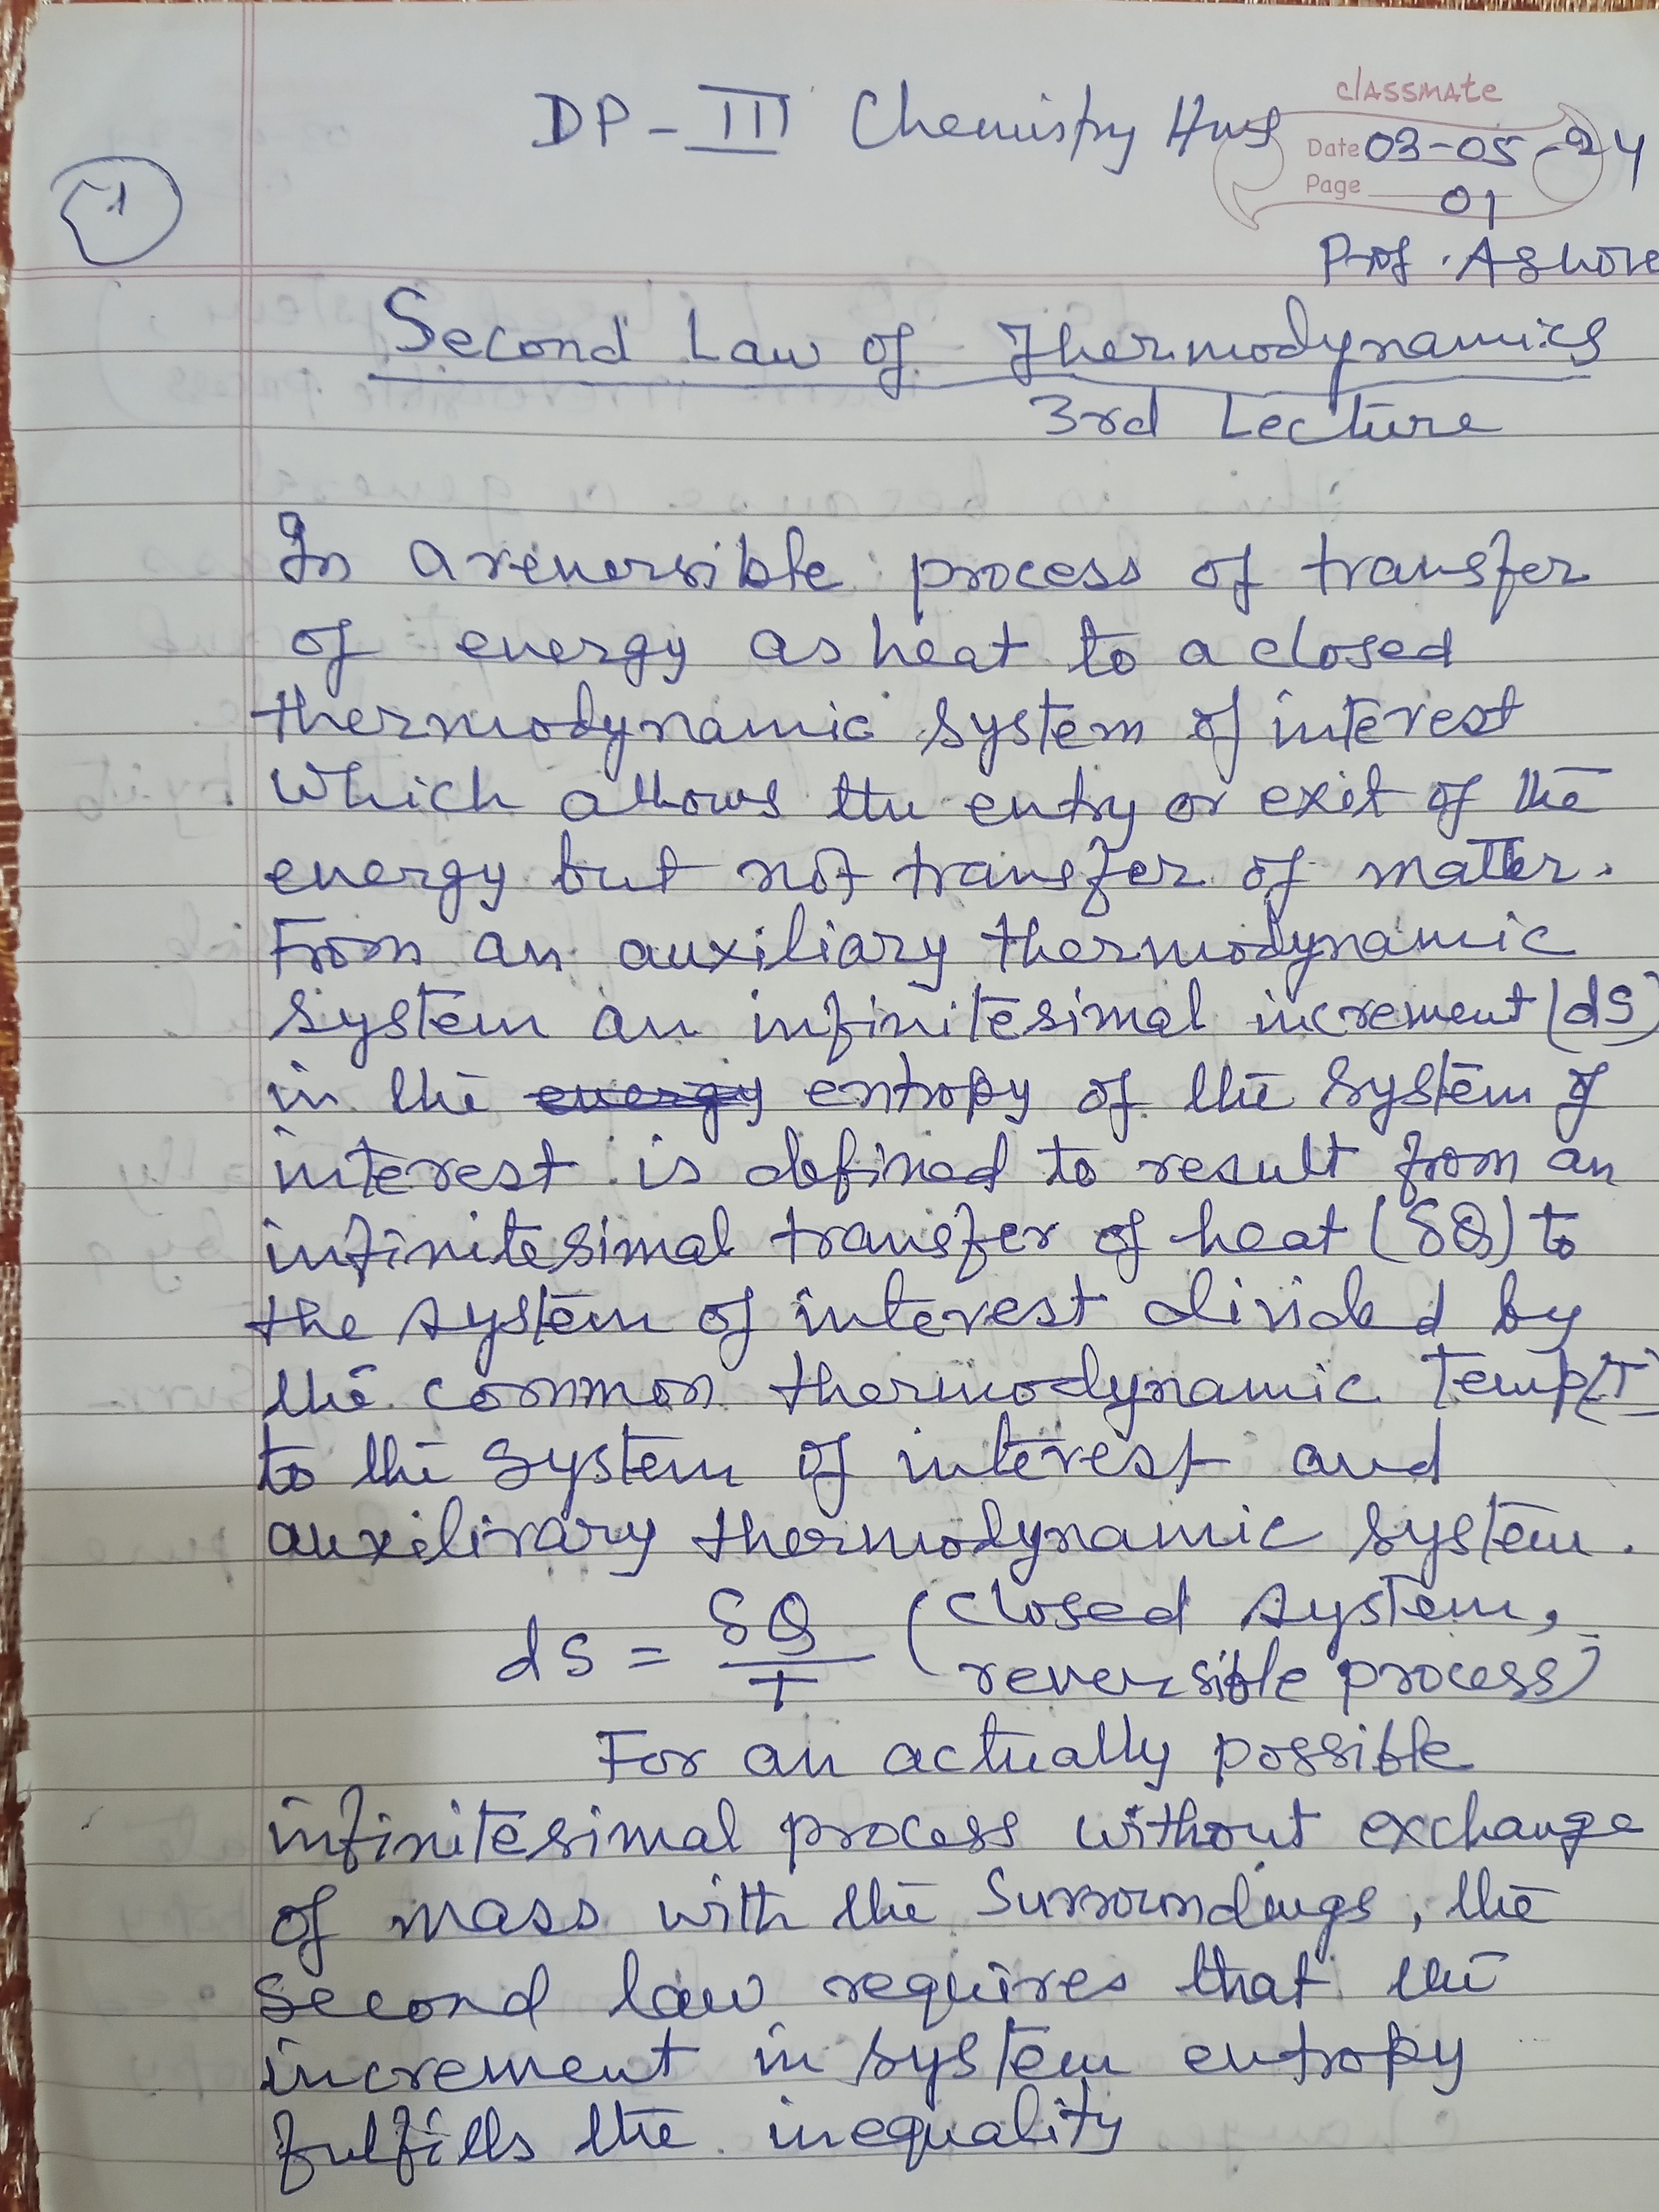 classmate
DP - III Chemistry Hns
Date 03-05-24
Page 01
1
Prof. Ashok
Second Law of Thermodynamics
3rd Lecture
In a reversible process of transfer
of energy as heat to a closed
thermodynamic system of interest
Which allows the entry or exit of the
energy but not transfer of matter.
From an auxiliary thermodynamic
system an infinitesimal increment (dS)
in the energy entropy of the system of
interest is defined to result from an
infinitesimal transfer of heat (δQ) to
the system of interest divided by
the common thermodynamic temp(T)
to the system of interest and
auxilirary thermodynamic system.
dS = δQ/T (closed system,
reversible process)
For an actually possible
infinitesimal process without exchange
of mass with the surroundings, the
second law requires that the
increment in system entropy
fulfills the inequality